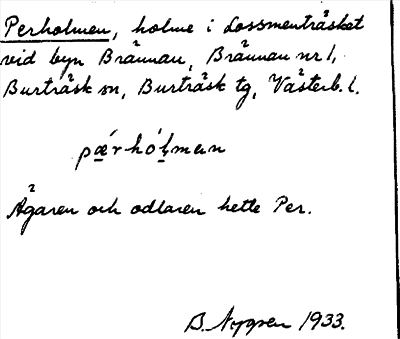 Perholmen, holme i Lossmenträsket
vid byn Brännan, Brännan nr 1,
Burträsk sn, Burträsk tg, Västerb. l.
pǽrhóḷmen
Ägaren och odlaren hette Per.
B. Nygren 1933.